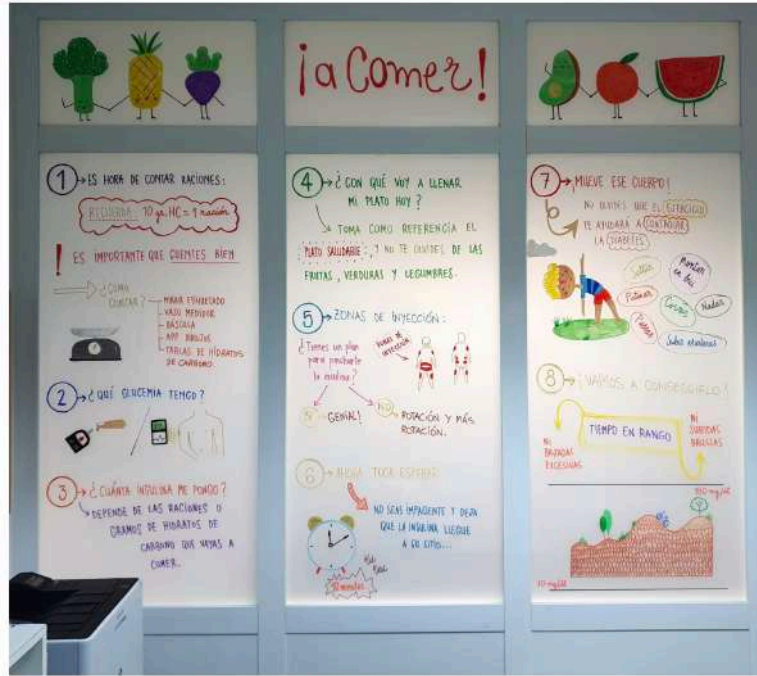 ¡a Comer!
1 → ES HORA DE CONTAR RACIONES:
RECUERDA: 10 gr. HC = 1 ración
! ES IMPORTANTE QUE CUENTES BIEN
¿CÓMO
CONTAR?
MIRAR ETIQUETADO
VASO MEDIDOR
BÁSCULA
APP DIBUJOS
TABLAS DE HIDRATOS
DE CARBONO
2 → ¿QUÉ GLUCEMIA TENGO?
3 → ¿CUÁNTA INSULINA ME PONGO?
DEPENDE DE LAS RACIONES O
GRAMOS DE HIDRATOS DE
CARBONO QUE VAYAS A
COMER.
4 → ¿CON QUÉ VOY A LLENAR
MI PLATO HOY?
TOMA COMO REFERENCIA EL
PLATO SALUDABLE, Y NO TE OLVIDES DE LAS
FRUTAS, VERDURAS Y LEGUMBRES.
5 → ZONAS DE INYECCIÓN:
¿Tienes un plan
para pincharte
la insulina?
ZONAS DE
INYECCIÓN
SI GENIAL!
NO ROTACIÓN Y MÁS
ROTACIÓN.
6 → AHORA TOCA ESPERAR
NO SEAS IMPACIENTE Y DEJA
QUE LA INSULINA LLEGUE
A SU SITIO...
minutos
7 → ¡MUEVE ESE CUERPO!
NO OLVIDES QUE EL EJERCICIO
TE AYUDARÁ A CONTROLAR
LA DIABETES.
Saltar
Montar
en bici
Patinar
Correr
Nadar
Pasear
Subir escaleras
8 → ¡VAMOS A CONSEGUIRLO!
NI
BAJADAS
EXCESIVAS
TIEMPO EN RANGO
NI
SUBIDAS
BRUSCAS
180 mg/dl
70 mg/dl